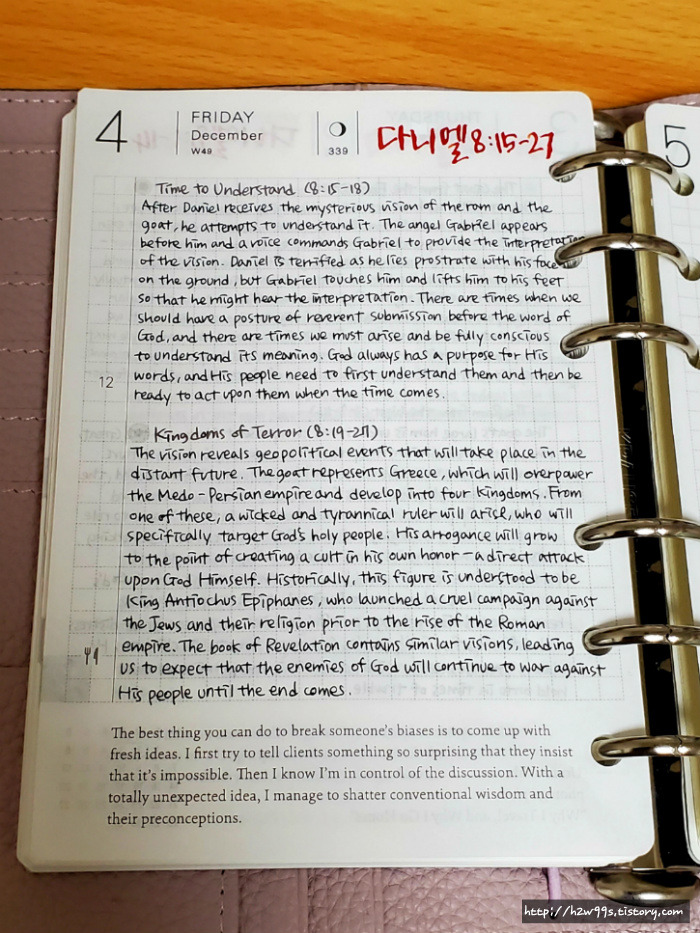 4
FRIDAY
December
W49
339
다니엘 8:15-27
5
Time to Understand (8:15-18)
After Daniel receives the mysterious vision of the rom and the
goat, he attempts to understand it. The angel Gabriel appears
before him and a voice commands Gabriel to provide the interpretation
of the vision. Daniel is terrified as he lies prostrate with his face
on the ground, but Gabriel touches him and lifts him to his feet
so that he might hear the interpretation. There are times when we
should have a posture of reverent submission before the word of
God, and there are times we must arise and be fully conscious
to understand its meaning. God always has a purpose for His
12
words, and His people need to first understand them and then be
ready to act upon them when the time comes.
Kingdoms of Terror (8:19-27)
The vision reveals geopolitical events that will take place in the
distant future. The goat represents Greece, which will overpower
the Medo-Persian empire and develop into four kingdoms. From
one of these, a wicked and tyrannical ruler will arise, who will
specifically target God's holy people. His arrogance will grow
to the point of creating a cult in his own honor - a direct attack
upon God Himself. Historically, this figure is understood to be
King Antiochus Epiphanes, who launched a cruel campaign against
the Jews and their religion prior to the rise of the Roman
empire. The book of Revelation contains similar visions, leading
us to expect that the enemies of God will continue to war against
His people until the end comes.
The best thing you can do to break someone's biases is to come up with
fresh ideas. I first try to tell clients something so surprising that they insist
that it's impossible. Then I know I'm in control of the discussion. With a
totally unexpected idea, I manage to shatter conventional wisdom and
their preconceptions.
http://h2w99s.tistory.com